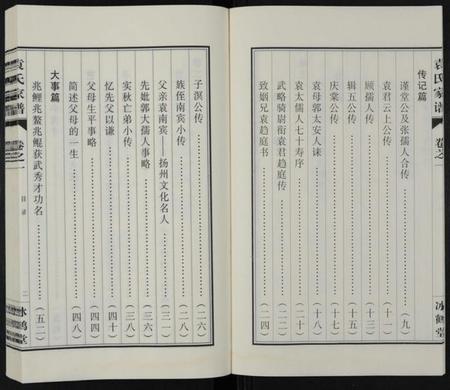 袁氏家谱
卷之一
冰鹤堂
传记篇
谨堂公及张孺人合传……(九)
袁君云上公传……(十一)
顾孺人传……(十三)
辑五公传……(十六)
庆棠公传……(十七)
袁母郭太安人诔……(十八)
袁太儒人七十寿序……(二十)
武略骑尉衔袁君趋庭传……(二二)
致姻兄袁趋庭书……(二四)
子溟公传……(二六)
族侄南宾小传……(二八)
父亲袁南宾——扬州文化名人……(三四)
先妣郭大孺人事略……(三六)
实秋亡弟小传……(三八)
忆先父以谦……(四十)
父母生平事略……(四四)
简述父母的一生……(四八)
大事篇
兆鲤兆鳌兆鲲获武秀才功名……(五二)
袁氏家谱
卷之一
目录
二
冰鹤堂